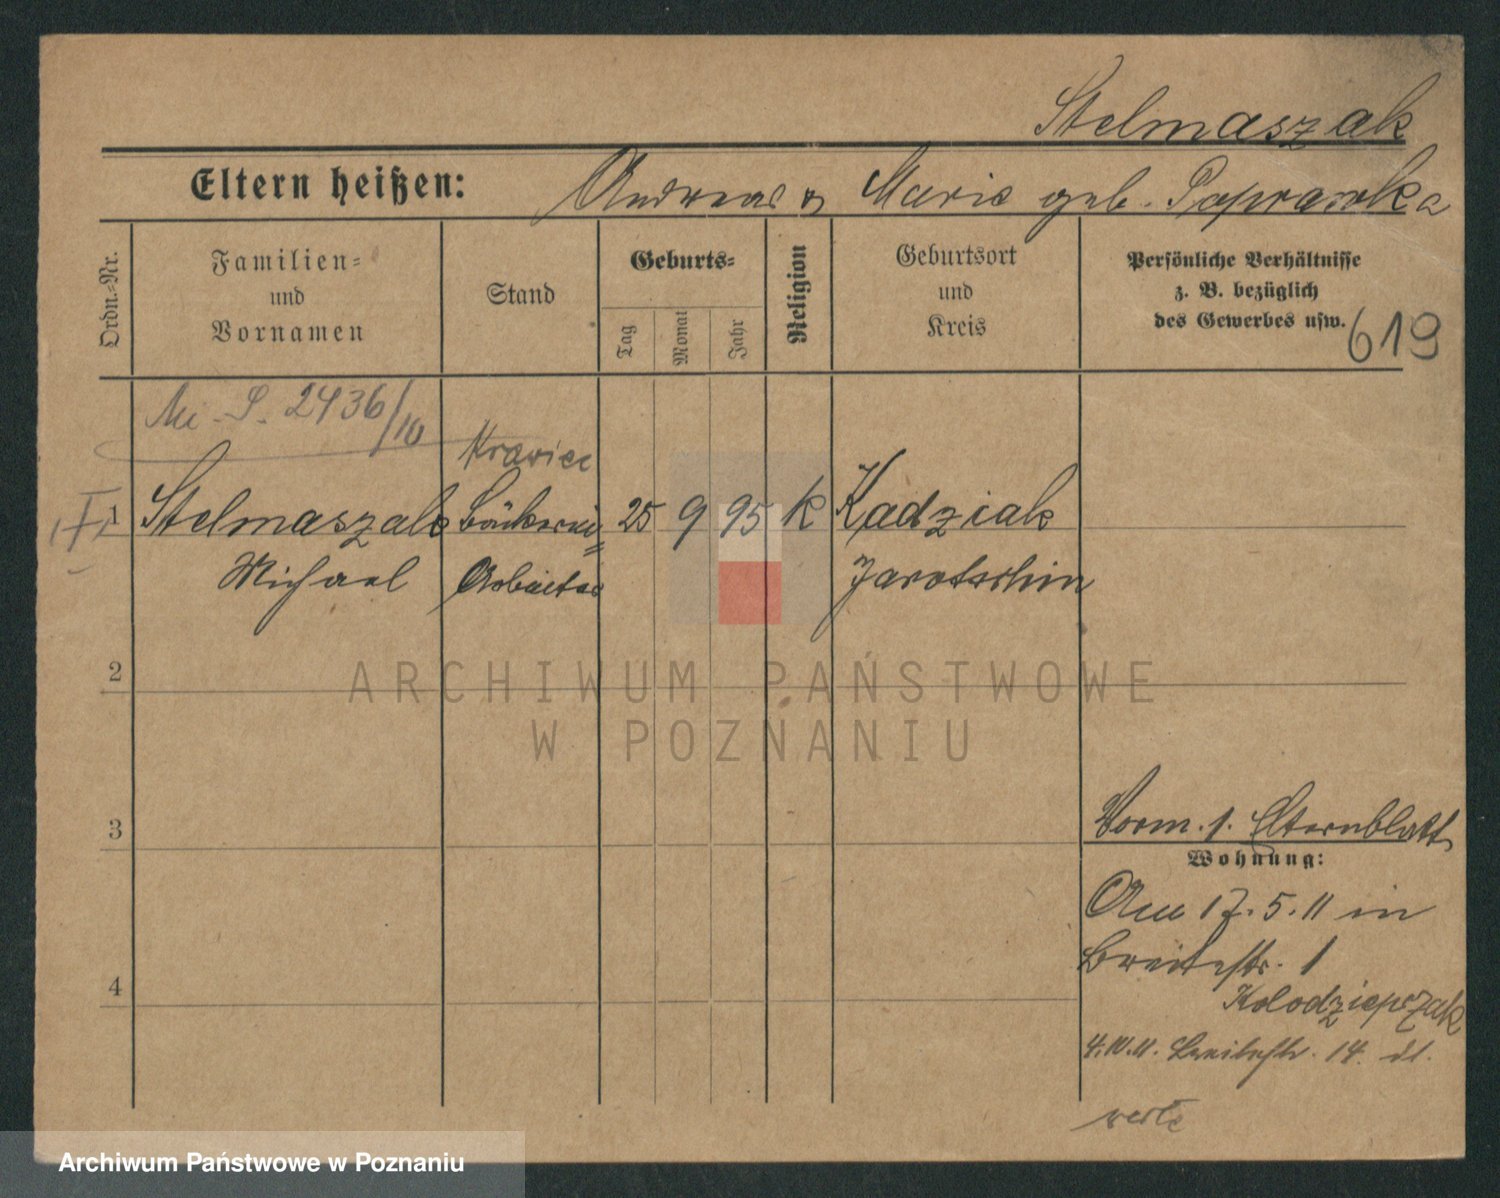 Stelmaszak
Eltern heißen: Andreas & Marie geb. Paprawka
Ordn.=Nr.
Familien=
und
Vornamen
Stand
Geburts=
Tag
Monat
Jahr
Religion
Geburtsort
und
Kreis
Persönliche Verhältnisse
z. B. bezüglich
des Gewerbes usw.
619
Mi. S. 2436/10
Krawiec
I
1 Stelmaszak Bäckerei= 25 9 95 K Kadziak
Michael Arbeiter Jarotschin
2
ARCHIWUM PAŃSTWOWE
W POZNANIU
3
Vorm. 1. Elternblatt
Wohnung:
Am 17.5.11 in
Breitestr. 1
4
Kolodziejczak
4.IV.11. Breitestr. 14. dl.
Archiwum Państwowe w Poznaniu